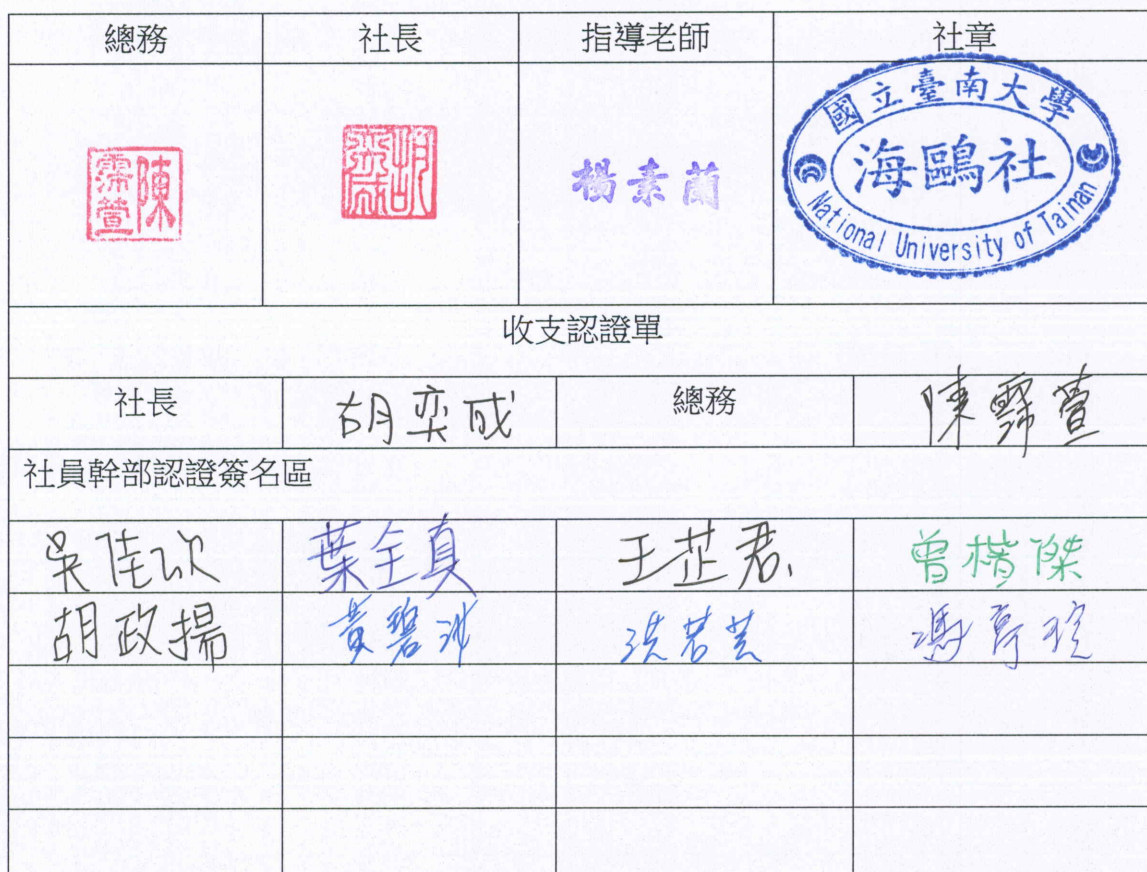 總務 社長 指導老師 社章
陳霈萱
胡奕
楊素蘭
國立臺南大學
海鷗社
National University of Tainan
收支認證單
社長 胡奕成 總務 陳霈萱
社員幹部認證簽名區
吳佳欣 葉全真 王芷君 曾楷傑
胡政揚 黃碧 洪若芸 馮